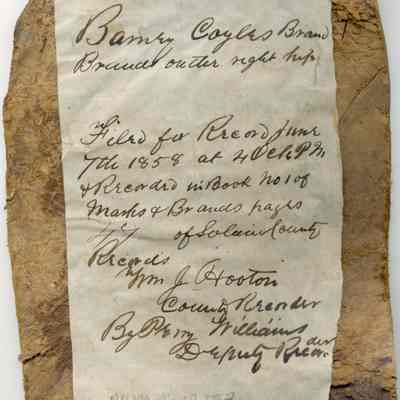 Barney Coyles Brand
Brands on the right hip
Filed for Record June
7th 1858 at 4 Oclk P.M
& Recorded in Book No 1 of
Marks & Brands pages
of Solano County
Records
Wm J. Hooton
County Recorder
By Perry Williams
Deputy Recorder